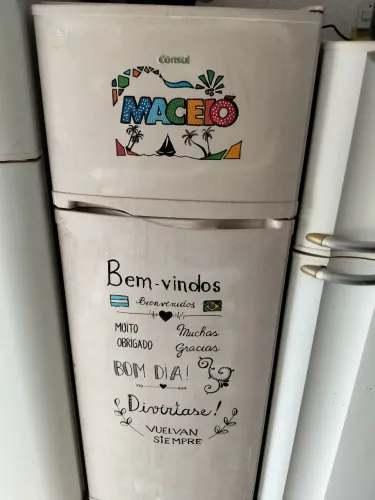 Consul
MACEIÓ
Bem-vindos
Bienvenidos
MUITO Muchas
OBRIGADO Gracias
BOM DIA!
Divirtase!
VUELVAN
SIEMPRE